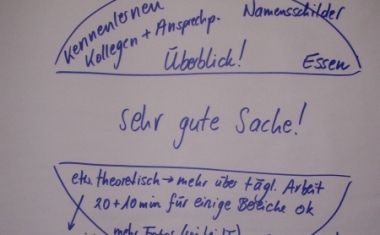 Kennenlernen
Kollegen + Ansprechp.
Namensschilder
Überblick!
Essen
Sehr gute Sache!
etw. theoretisch → mehr über tägl. Arbeit
20 + 10 min für einige Bereiche ok
mehr Fotos